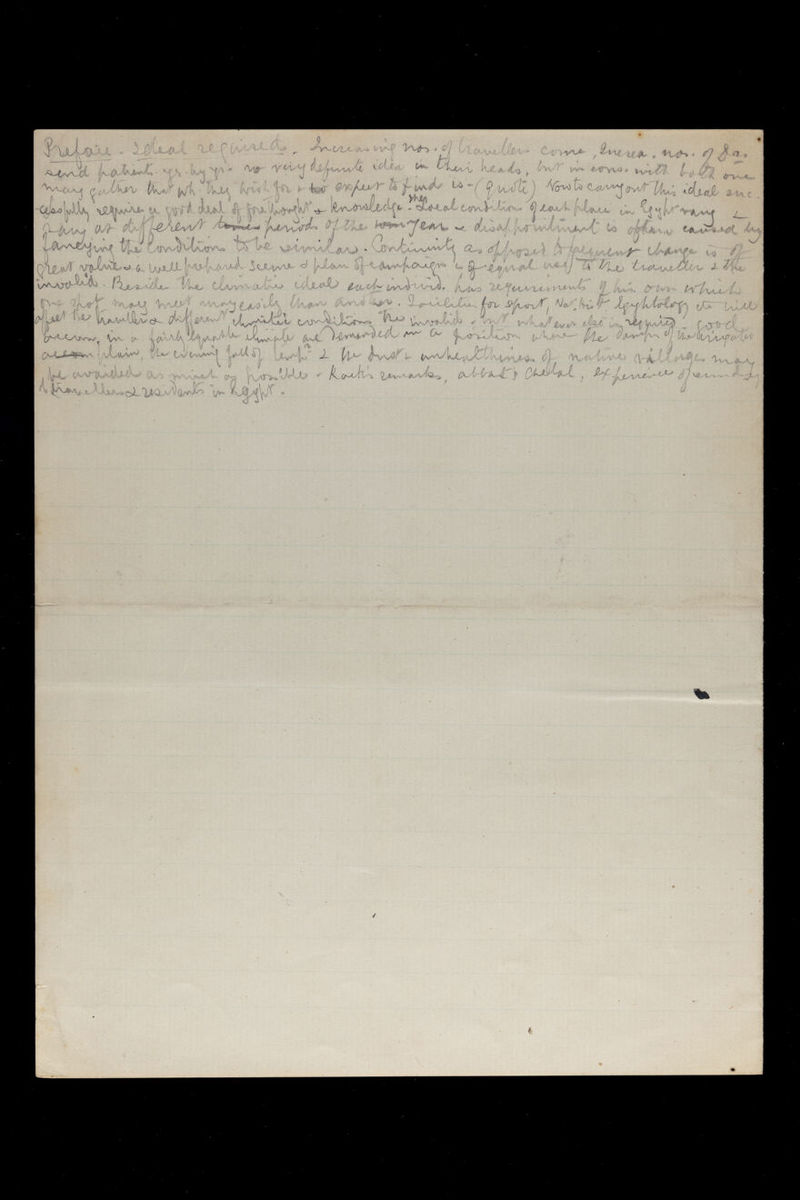 Preface - Ideal required. Increasing nos. of travellers come, Increa. nos. of Drs.
send patients yr. by yr. no very definite idea in their heads, but in convs. with both one
may gather that wh. they wish for & expect to find is - (quote) Now to carry out this ideal suc-
-cessfully require a good deal of forethought & knowledge. The local condition of each place in Egypt vary &
vary at different periods of the year & disappointment is often caused by
fancying the conditions to be similar. Continuity as opposed to frequent change is of
great value & a well prepared sceme & plan of campaign is of equal use to the traveller & the
invalid. Beside the climatic ideal each individ. has requirements of his own which
one spot may meet more easily than another. Facilities for sport, Nat. hist. Egyptology etc will
affect the traveller & different climatic conditions the invalid - but what ever else is required - good
accom. in a fairly equable climate are demanded in a position where the damp of the irrigated
plain, the evening fall of temp. & the dust & unhealthiness of native villages may
be avoided as much as possible - remarks, experience of
travellers & residents in Egypt.